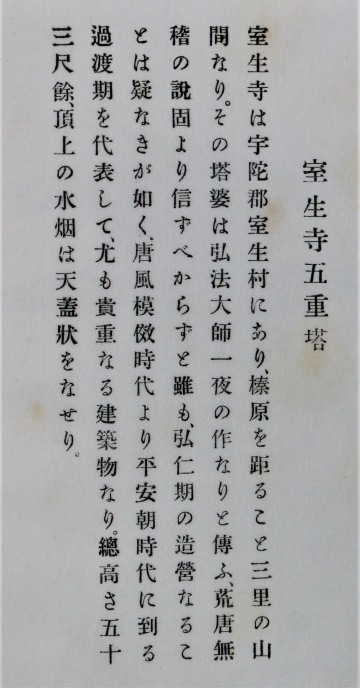 室生寺五重塔
室生寺は宇陀郡室生村にあり、榛原を距ること三里の山
間なり。その塔婆は弘法大師一夜の作なりと傳ふ、荒唐無
稽の說固より信ずべからずと雖も、弘仁期の造營なるこ
とは疑なきが如く、唐風模倣時代より平安朝時代に到る
過渡期を代表して、尤も貴重なる建築物なり。總高さ五十
三尺餘、頂上の水烟は天蓋狀をなせり。